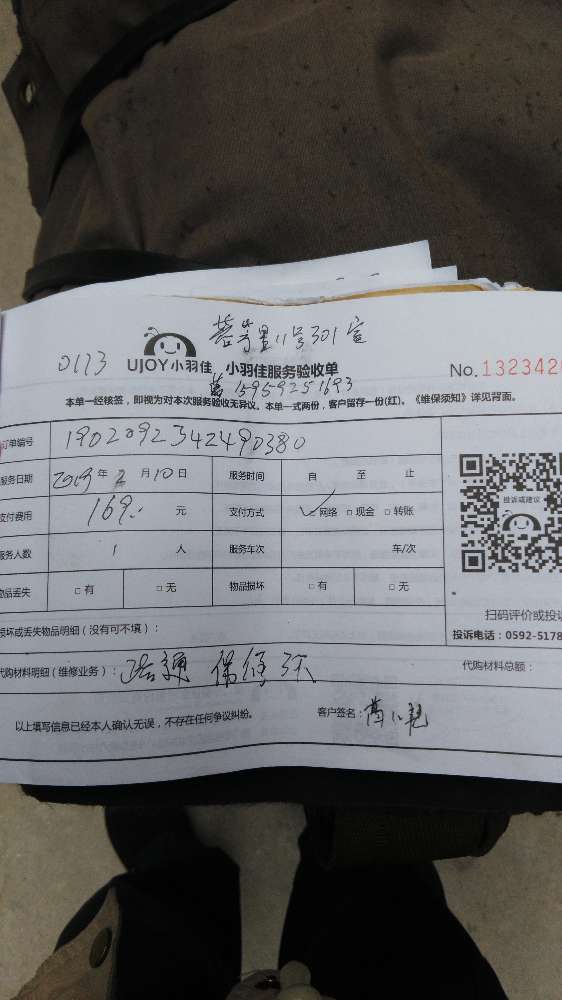 号301室
0113
UJOY小羽佳 小羽佳服务验收单 No.1323420
15959251693
本单一经核签，即视为对本次服务验收无异议。本单一式两份，客户留存一份(红)。《维保须知》详见背面。
订单编号 1902092342490380
服务日期 2019年2月10日 服务时间 自 至 止
支付费用 169. 元 支付方式 ☑网络 □现金 □转账
服务人数 1 人 服务车次 车/次
物品丢失 □有 □无 物品损坏 □有 □无
投诉或建议
扫码评价或投诉
损坏或丢失物品明细（没有可不填）：
投诉电话：0592-5178
代购材料明细（维修业务）： 保修 天 代购材料总额：
以上填写信息已经本人确认无误，不存在任何争议纠纷。 客户签名：